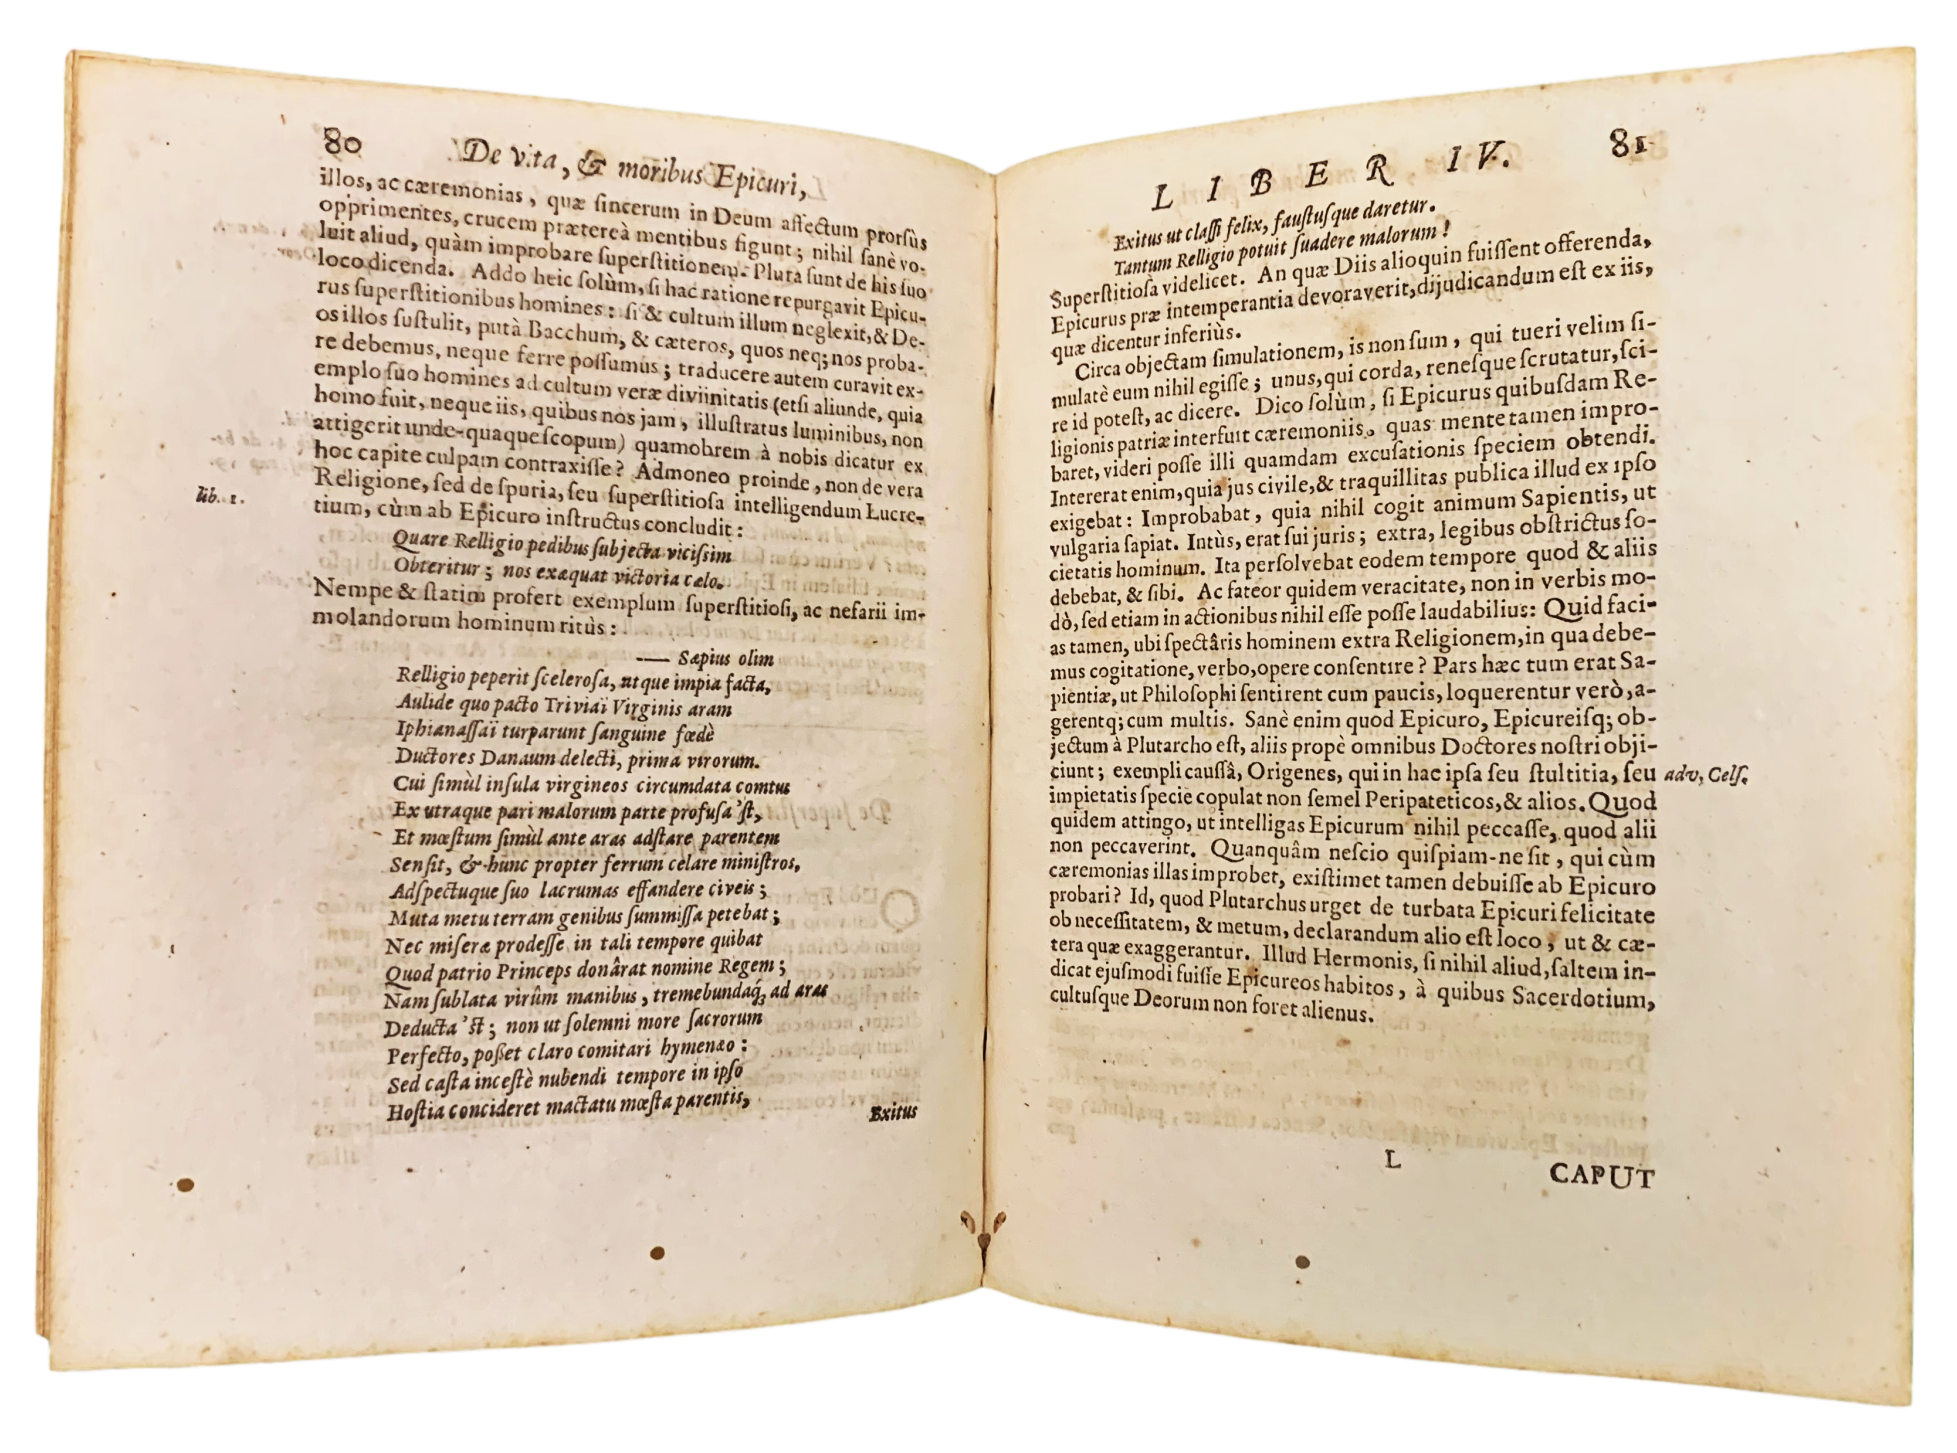 80 De vita, & moribus Epicuri,
illos, ac cæremonias, quæ ſincerum in Deum affectum prorſùs
opprimentes, crucem prætereà mentibus figunt; nihil ſanè vo-
luit aliud, quàm improbare ſuperſtitionem. Plura ſunt de his ſuo
loco dicenda. Addo heic ſolùm, ſi hac ratione repurgavit Epicu-
rus ſuperſtitionibus homines: ſi & cultum illum neglexit, & De-
os illos ſuſtulit, putà Bacchum, & cæteros, quos neq; nos proba-
re debemus, neque ferre poſſumus; traducere autem curavit ex-
emplo ſuo homines ad cultum veræ diviinitatis (etſi aliunde, quia
homo fuit, neque iis, quibus nos jam, illuſtratus luminibus, non
attigerit unde-quaque ſcopum) quamobrem à nobis dicatur ex
hoc capite culpam contraxiſſe? Admoneo proinde, non de vera
Religione, ſed de ſpuria, ſeu ſuperſtitioſa intelligendum Lucre-
lib. 1.
tium, cùm ab Epicuro inſtructus concludit:
Quare Relligio pedibus ſubjecta viciſsim
Obteritur; nos exæquat victoria cælo.
Nempe & ſtatim profert exemplum ſuperſtitioſi, ac nefarii im-
molandorum hominum ritùs:
—— Sæpius olim
Relligio peperit ſceleroſa, atque impia facta,
Aulide quo pacto Triviaï Virginis aram
Iphianaſſaï turparunt ſanguine fœdè
Ductores Danaum delecti, prima virorum.
Cui ſimùl inſula virgineos circumdata comtus
Ex utraque pari malorum parte profuſa'ſt,
Et mœſtum ſimùl ante aras adſtare parentem
Senſit, & hunc propter ferrum celare miniſtros,
Adſpectuque ſuo lacrumas effandere civeis;
Muta metu terram genibus ſummiſſa petebat;
Nec miſeræ prodeſſe in tali tempore quibat
Quod patrio Princeps donârat nomine Regem;
Nam ſublata virûm manibus, tremebundaq́; ad aras
Deducta'ſt; non ut ſolemni more ſacrorum
Perfecto, poßet claro comitari hymenæo:
Sed caſta inceſtè nubendi tempore in ipſo
Hoſtia concideret mactatu mœſta parentis,
Exitus
LIBER IV. 81
Exitus ut claſſi felix, fauſtuſque daretur.
Tantum Relligio potuit ſuadere malorum!
Superſtitioſa videlicet. An quæ Diis alioquin fuiſſent offerenda,
Epicurus præ intemperantia devoraverit, dijudicandum eſt ex iis,
quæ dicentur inferiùs.
Circa objectam ſimulationem, is non ſum, qui tueri velim ſi-
mulatè eum nihil egiſſe; unus, qui corda, reneſque ſcrutatur, ſci-
re id poteſt, ac dicere. Dico ſolùm, ſi Epicurus quibuſdam Re-
ligionis patriæ interfuit cæremoniis, quas mente tamen impro-
baret, videri poſſe illi quamdam excuſationis ſpeciem obtendi.
Intererat enim, quia jus civile, & traquillitas publica illud ex ipſo
exigebat: Improbabat, quia nihil cogit animum Sapientis, ut
vulgaria ſapiat. Intùs, erat ſui juris; extra, legibus obſtrictus ſo-
cietatis hominum. Ita perſolvebat eodem tempore quod & aliis
debebat, & ſibi. Ac fateor quidem veracitate, non in verbis mo-
dò, ſed etiam in actionibus nihil eſſe poſſe laudabilius: Quid faci-
as tamen, ubi ſpectâris hominem extra Religionem, in qua debe-
mus cogitatione, verbo, opere conſentire? Pars hæc tum erat Sa-
pientiæ, ut Philoſophi ſentirent cum paucis, loquerentur verò, a-
gerentq; cum multis. Sanè enim quod Epicuro, Epicureiſq; ob-
jectum à Plutarcho eſt, aliis propè omnibus Doctores noſtri obji-
ciunt; exempli cauſſâ, Origenes, qui in hac ipſa ſeu ſtultitia, ſeu
adv. Celſ.
impietatis ſpecie copulat non ſemel Peripateticos, & alios. Quod
quidem attingo, ut intelligas Epicurum nihil peccaſſe, quod alii
non peccaverint. Quanquâm neſcio quiſpiam-ne ſit, qui cùm
cæremonias illas improbet, exiſtimet tamen debuiſſe ab Epicuro
probari? Id, quod Plutarchus urget de turbata Epicuri felicitate
ob neceſſitatem, & metum, declarandum alio eſt loco, ut & cæ-
tera quæ exaggerantur. Illud Hermonis, ſi nihil aliud, ſaltem in-
dicat ejuſmodi fuiſſe Epicureos habitos, à quibus Sacerdotium,
cultuſque Deorum non foret alienus.
L CAPUT